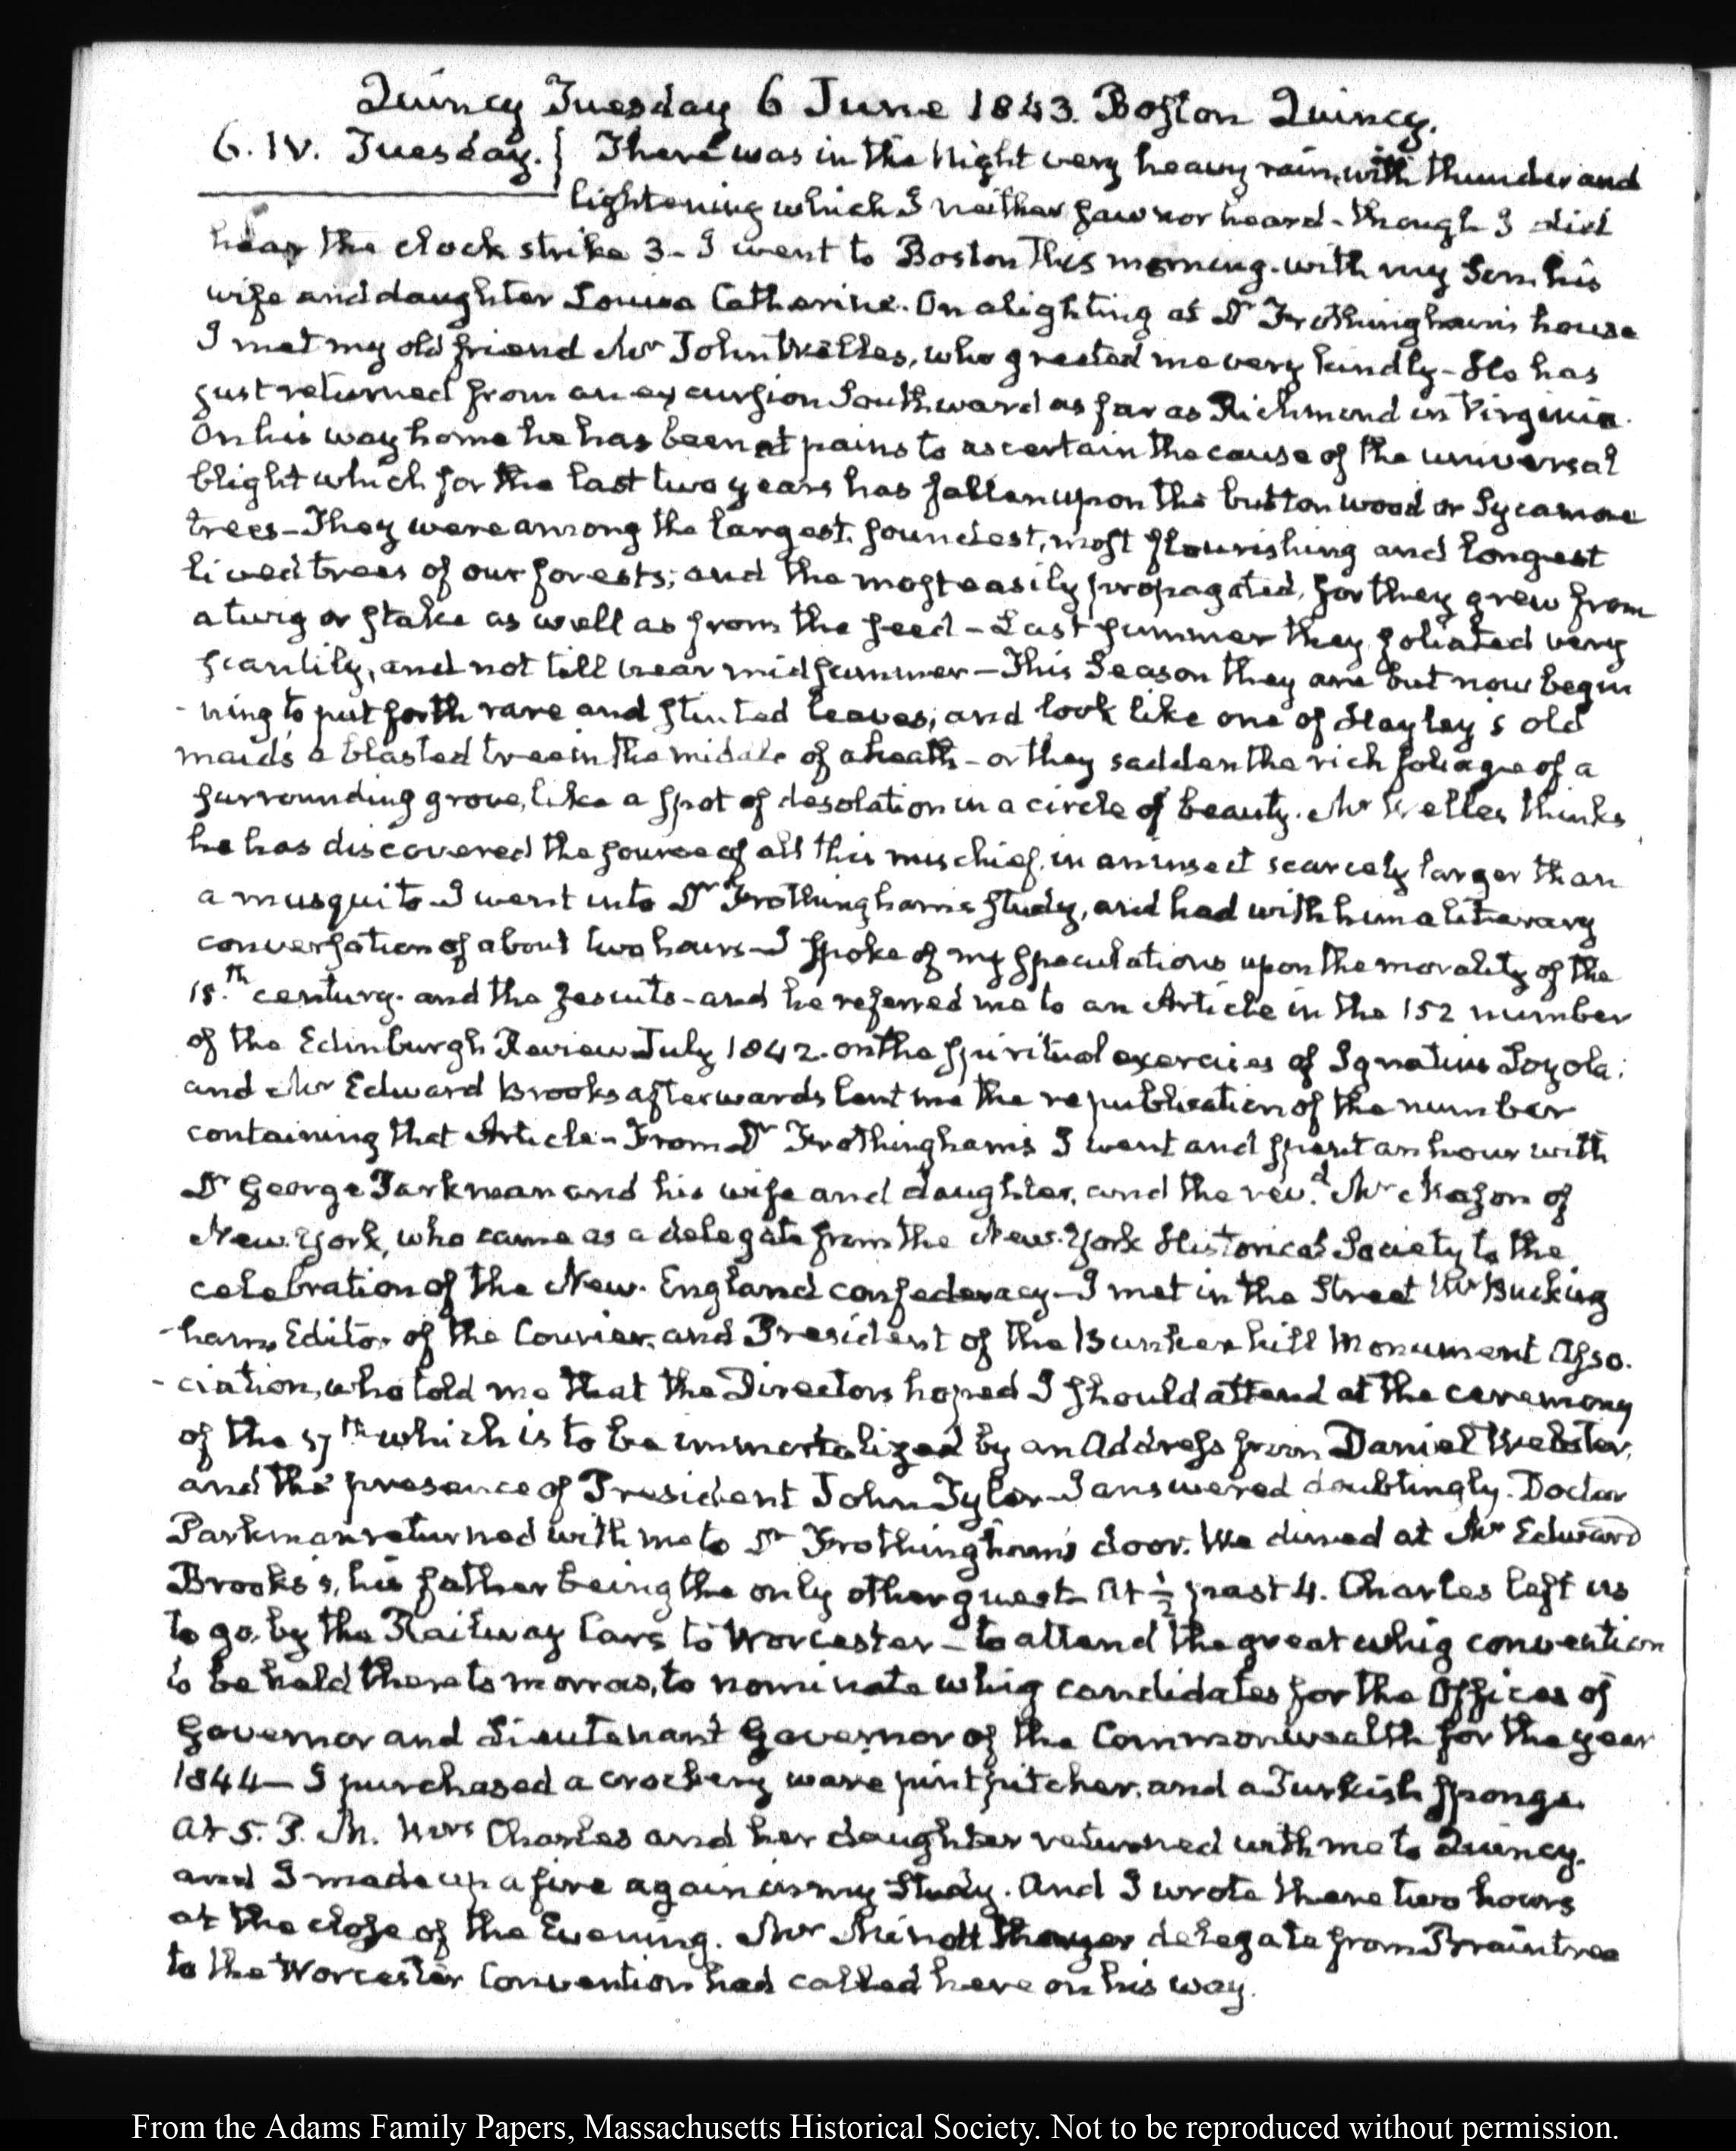 Quincy Tuesday 6 June 1843. Boston Quincy.
6. IV. Tuesday. } There was in the Night very heavy rain, with thunder and
lightening which I neither saw nor heard - though I did
hear the clock strike 3 - I went to Boston this morning. with my Son his
wife and daughter Louisa Catherine. On alighting at Dr Frothingham's house
I met my old friend Mr John Welles, who greeted me very kindly - He has
just returned from an excursion Southward as far as Richmond in Virginia.
On his way home he has been at pains to ascertain the cause of the universal
blight which for the last two years has fallen upon the button wood or Sycamore
trees - They were among the largest, soundest, most flourishing and longest
lived trees of our forests; and the most easily propagated, for they grew from
a twig or stake as well as from the seed - Last summer they foliated very
scantily, and not till near midsummer - This Season they are but now begin
-ning to put forth rare and stinted leaves; and look like one of Hayley's old
maids a blasted tree in the middle of a heath - or they sadden the rich foliage of a
surrounding grove, like a spot of desolation in a circle of beauty. Mr Welles thinks
he has discovered the source of all this mischief, in an insect scarcely larger than
a musquito - I went into Dr Frothingham's study, and had with him a literary
conversation of about two hours - I spoke of my speculations upon the morality of the
15.th century. and the Jesuits - and he referred me to an Article in the 152 number
of the Edinburgh Review July 1842. on the spiritual exercises of Ignatius Loyola;
and Mr Edward Brooks afterwards lent me the republication of the number
containing that Article - From Dr Frothingham's I went and spent an hour with
Dr George Parkman and his wife and daughter, and the rev.d Mr Mason of
New-York, who came as a delegate from the New-York Historical Society to the
celebration of the New-England confederacy - I met in the Street Mr Bucking
-ham, Editor of the Courier, and President of the Bunker hill Monument Asso.
-ciation, who told me that the Directors hoped I should attend at the ceremony
of the 17th which is to be immortalized by an Address from Daniel Webster,
and the presence of President John Tyler - I answered doubtingly. Doctor
Parkman returned with me to Dr Frothingham's door. We dined at Mr Edward
Brooks's, his father being the only other guest - At ½ past 4. Charles left us
to go, by the Railway Cars to Worcester - to attend the great whig convention
to be held there to morrow, to nominate whig candidates for the Offices of
Governor and Lieutenant Governor of the Commonwealth for the year
1844 - I purchased a crockery ware pint pitcher, and a Turkish sponge.
At 5. P. M. Mrs Charles and her daughter returned with me to Quincy.
and I made up a fire again in my Study. And I wrote there two hours
at the close of the Evening. Mr Minott Thayer delegate from Braintree
to the Worcester Convention had called here on his way.
From the Adams Family Papers, Massachusetts Historical Society. Not to be reproduced without permission.